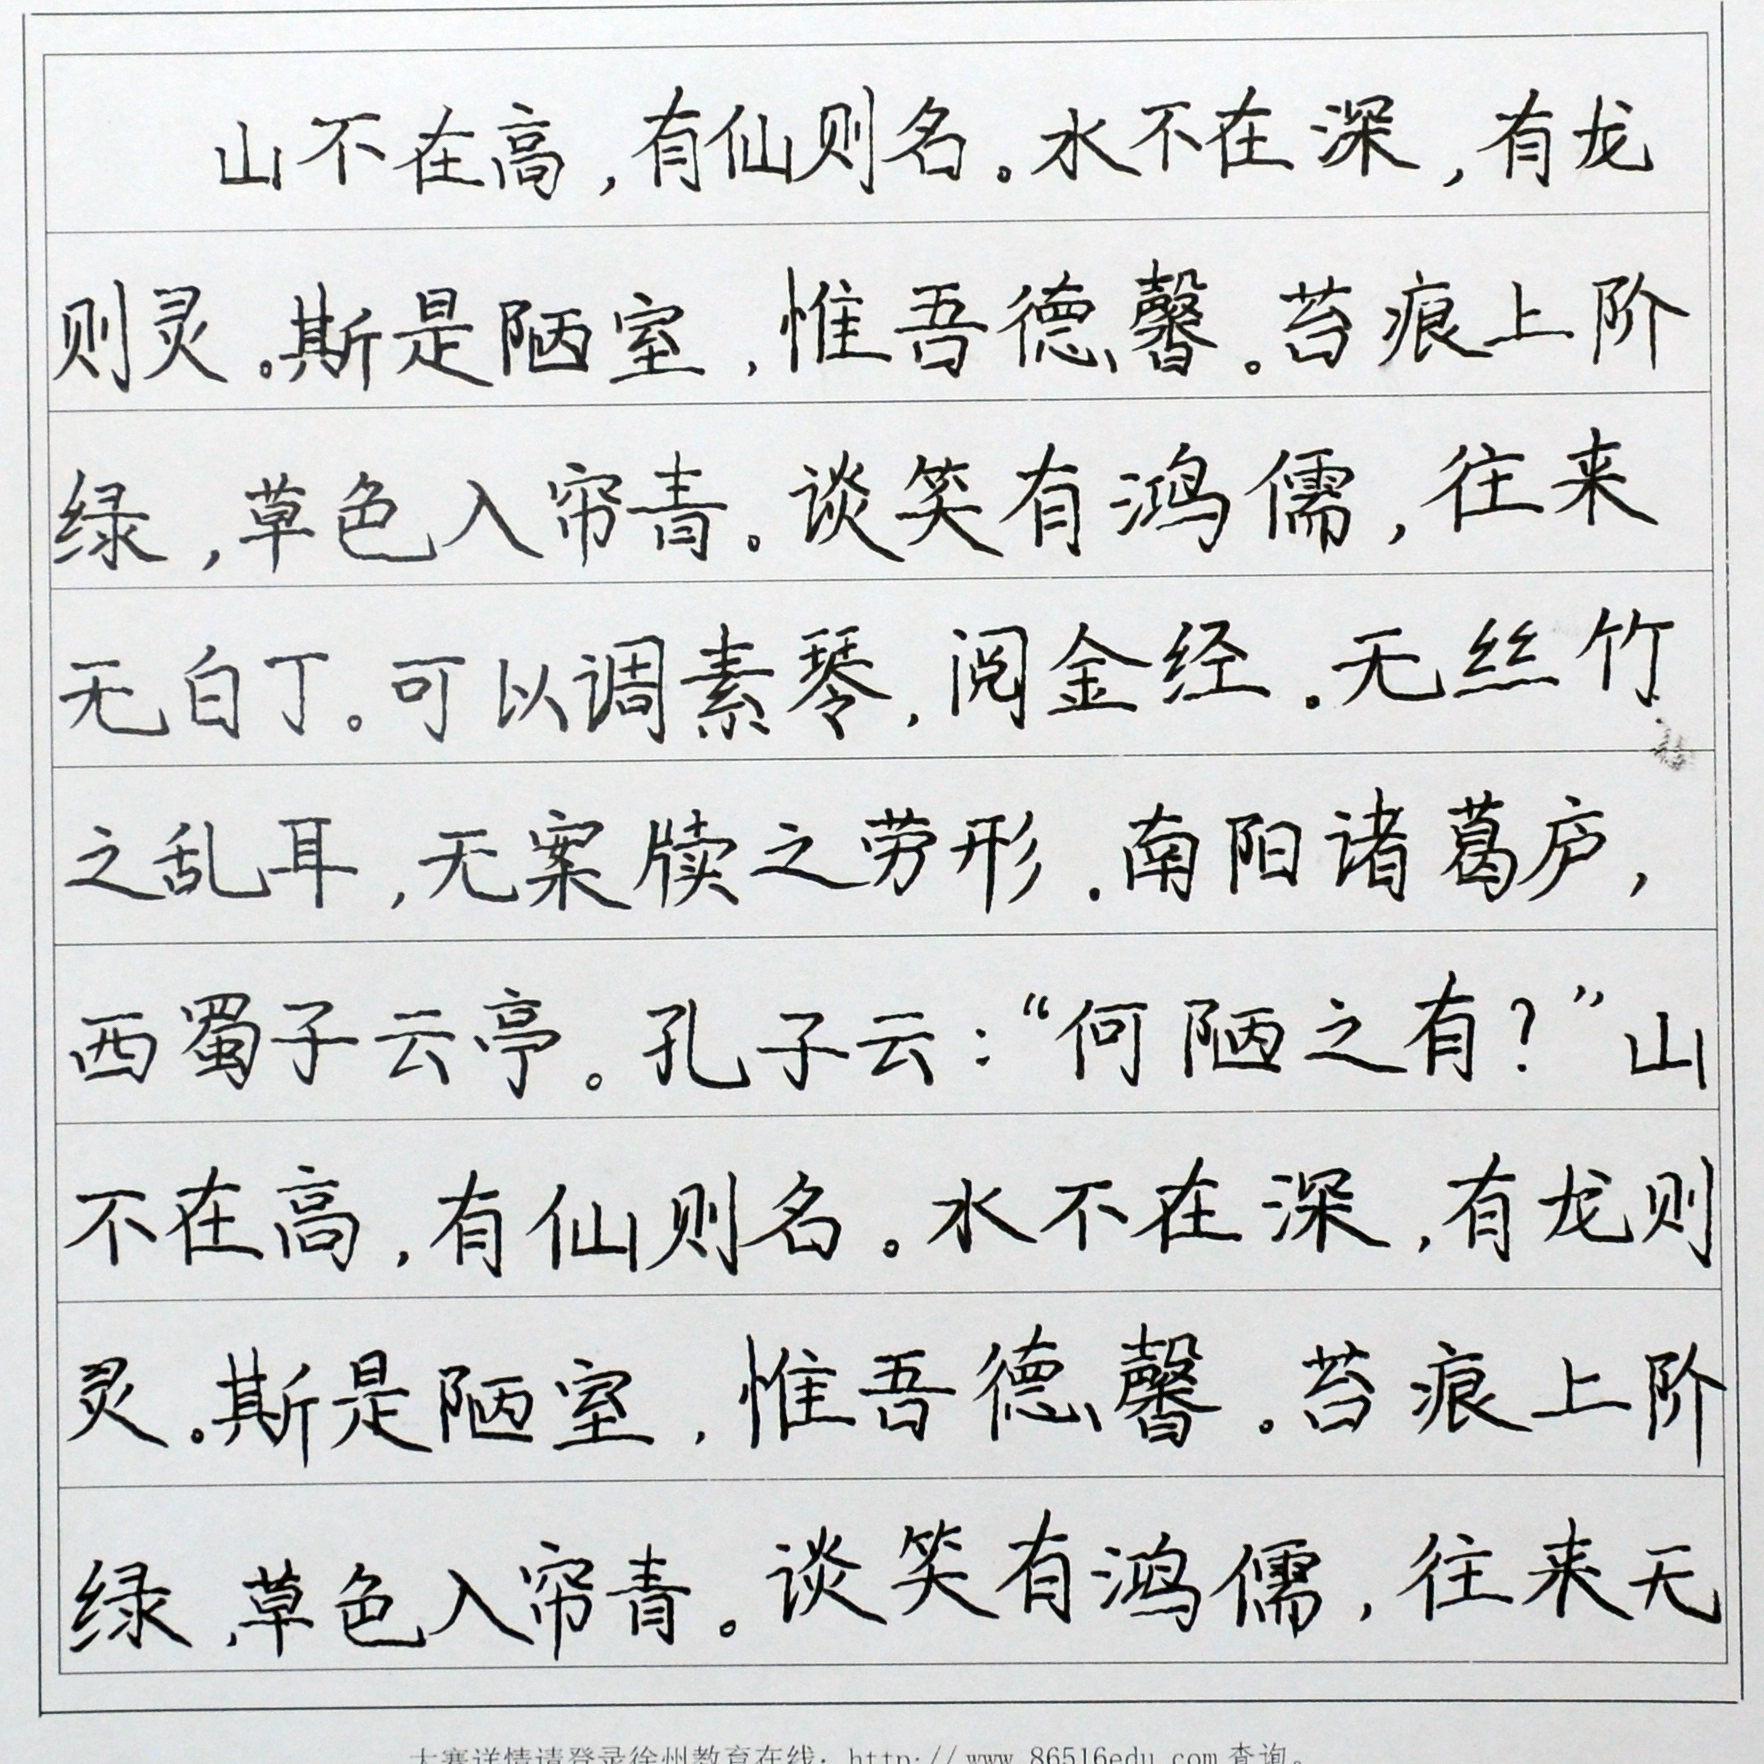 山不在高，有仙则名。水不在深，有龙
则灵。斯是陋室，惟吾德馨。苔痕上阶
绿，草色入帘青。谈笑有鸿儒，往来
无白丁。可以调素琴，阅金经。无丝竹
之乱耳，无案牍之劳形。南阳诸葛庐，
西蜀子云亭。孔子云：“何陋之有？”山
不在高，有仙则名。水不在深，有龙则
灵。斯是陋室，惟吾德馨。苔痕上阶
绿，草色入帘青。谈笑有鸿儒，往来无
大赛详情请登录徐州教育在线：http://www.86516edu.com查询。